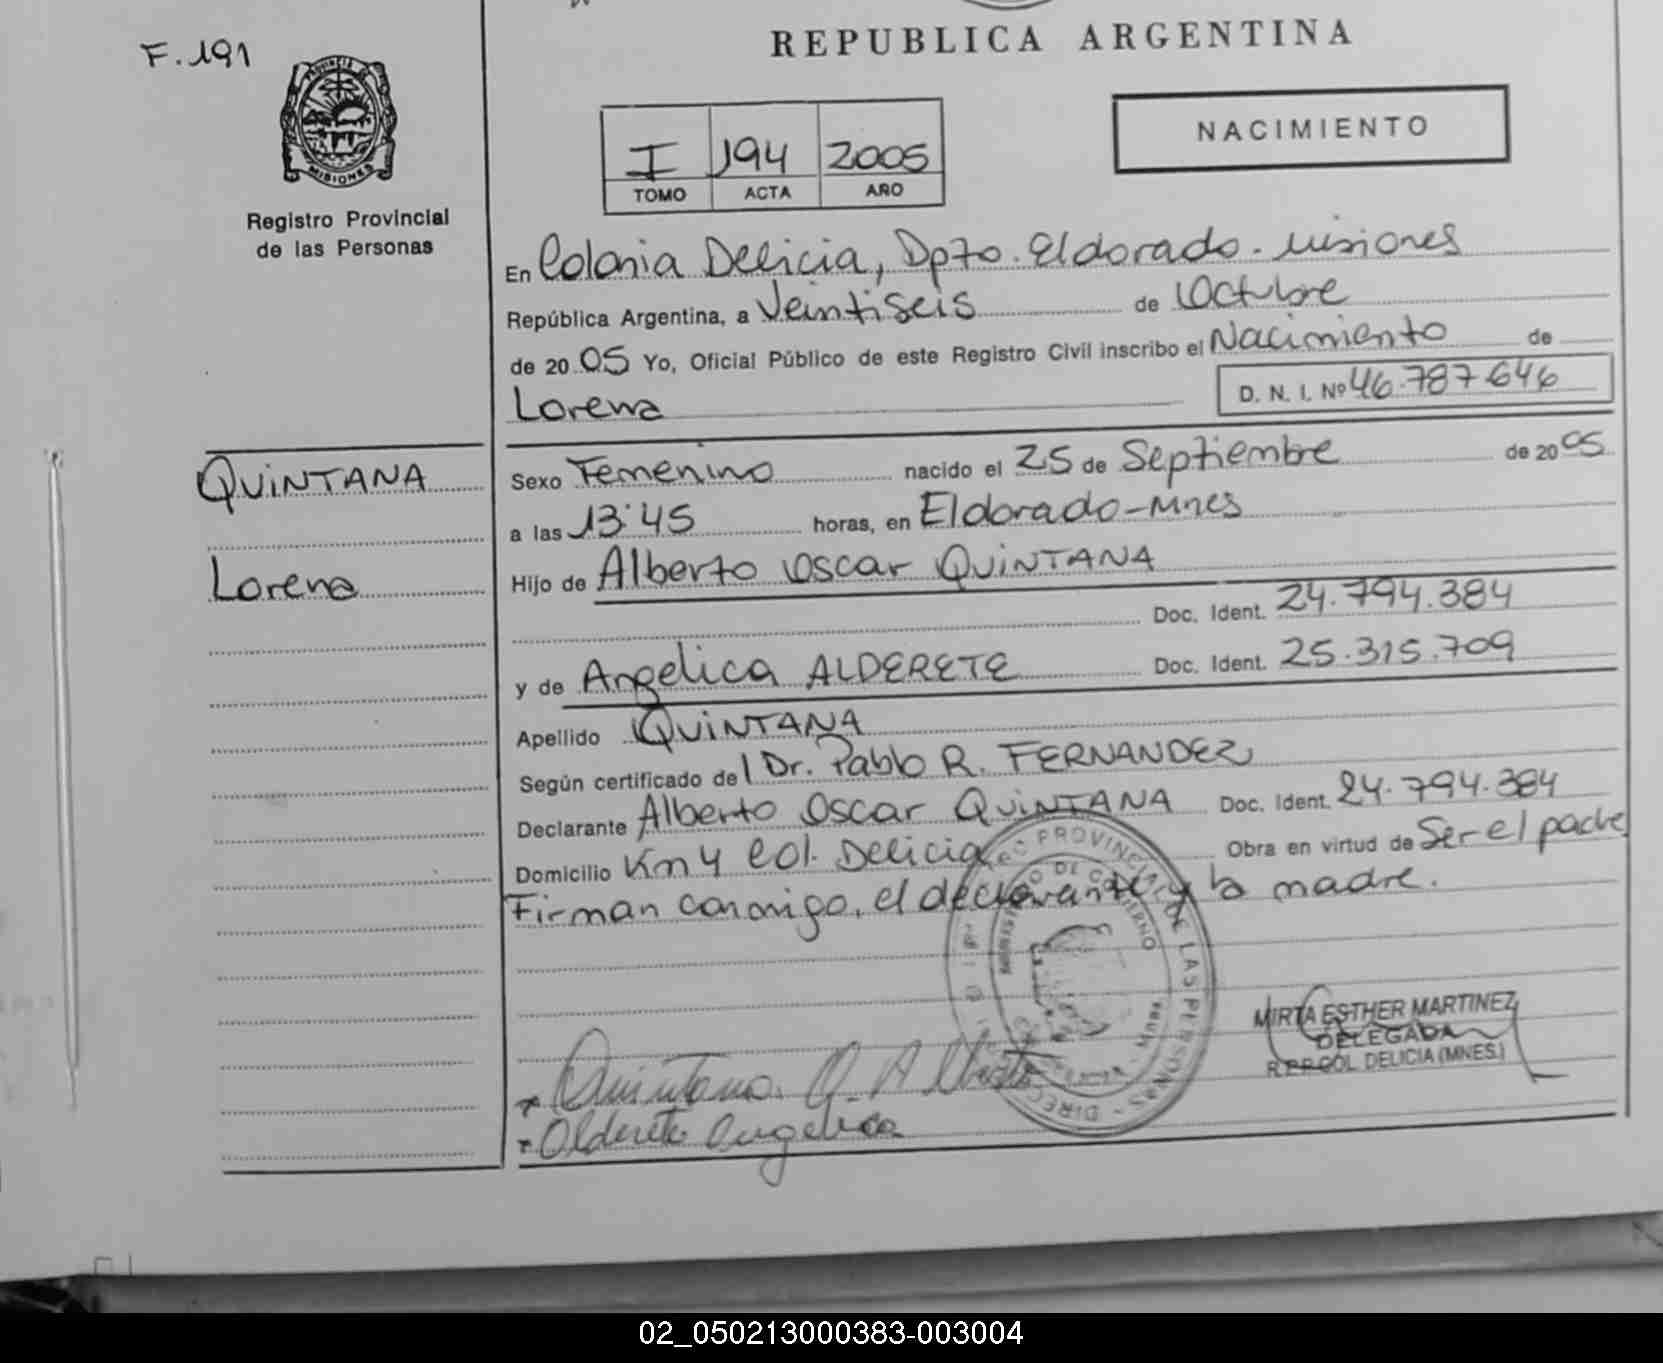 F. 191
REPUBLICA ARGENTINA
PROVINCIA DE
MISIONES
Registro Provincial
de las Personas
I 194 2005
TOMO ACTA AÑO
NACIMIENTO
En Colonia Delicia, Dpto. Eldorado - Misiones
República Argentina, a Veintiseis de Octubre
de 20 05 Yo, Oficial Público de este Registro Civil inscribo el Nacimiento de
Lorena
D. N. I. Nº 46.787.646
QUINTANA
Lorena
Sexo Femenino nacido el 25 de Septiembre de 20 05
a las 13:45 horas, en Eldorado-Mnes
Hijo de Alberto Oscar QUINTANA
Doc. Ident. 24.794.384
y de Angelica ALDERETE Doc. Ident. 25.315.709
Apellido QUINTANA
Según certificado de l Dr. Pablo R. FERNANDEZ
Declarante Alberto Oscar QUINTANA Doc. Ident. 24.794.384
Domicilio Km 4 Col. Delicia Obra en virtud de Ser el padre
Firman conmigo, el declarante y la madre.
PROVINCIAL DE LAS PERSONAS - DIREC
MIRTA ESTHER MARTINEZ
DELEGADA
R.P.P. COL. DELICIA (MNES.)
Quintana. O. Alberto
Alderete Angelica
02_050213000383-003004